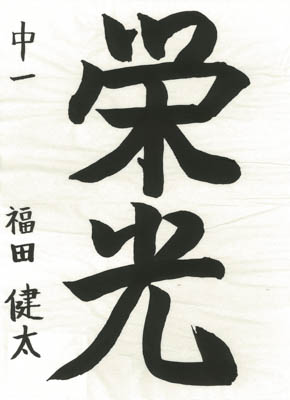 栄光
中一 福田健太